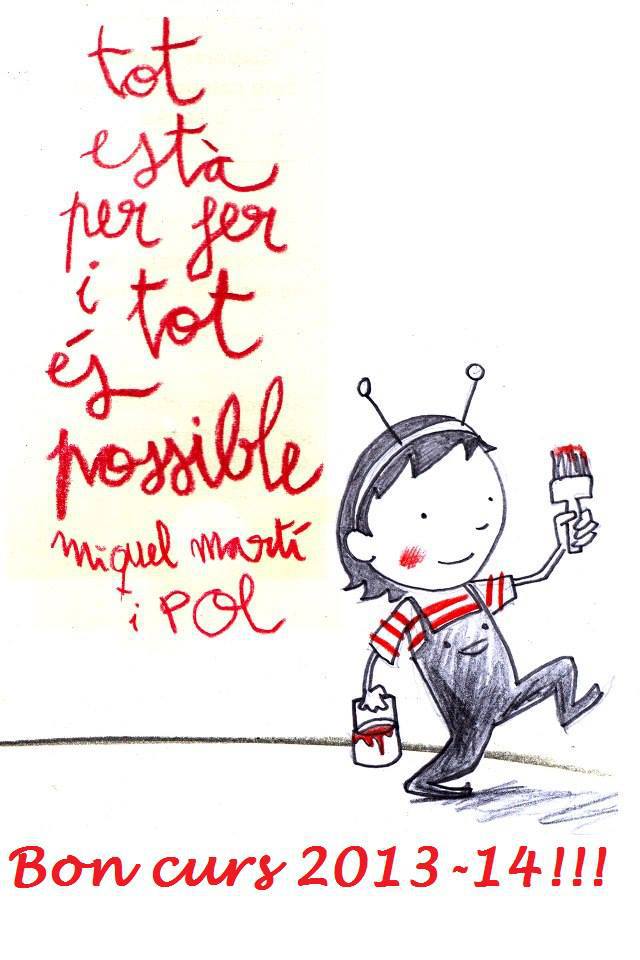 tot
està
per fer
i tot
és
possible
miquel martí
i POL
Bon curs 2013-14!!!